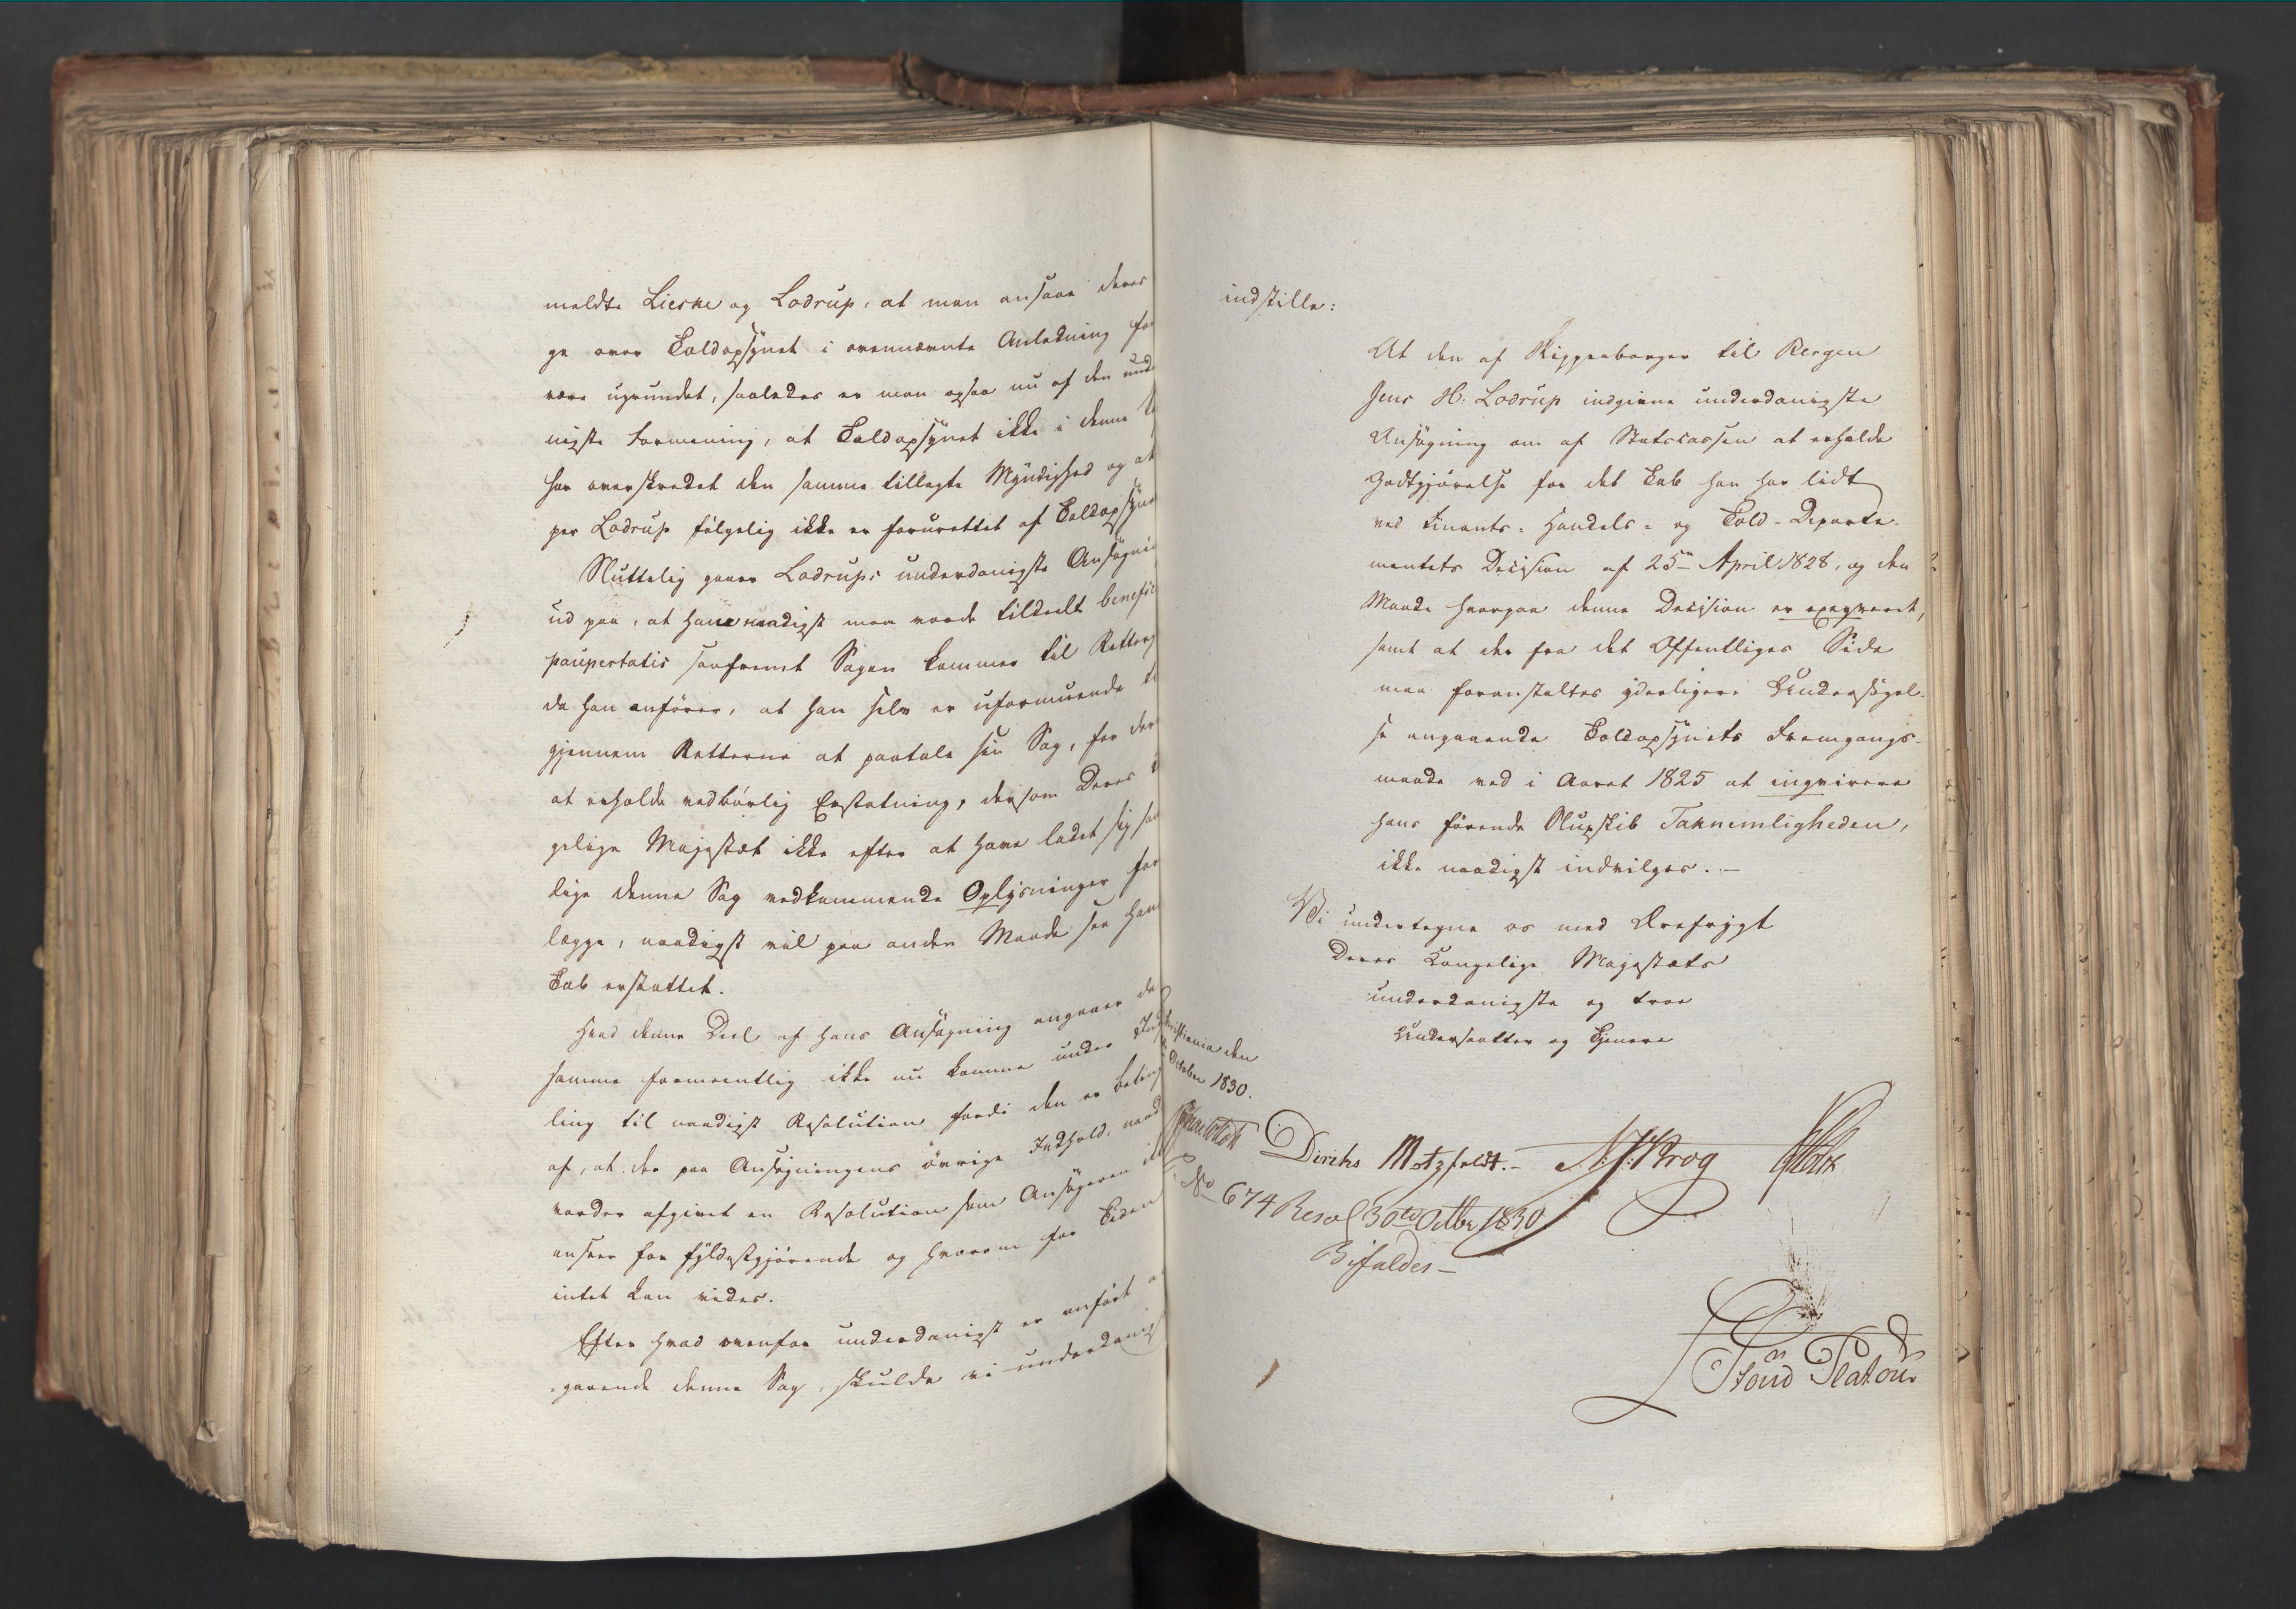 meldte Lieske og Lodrup, at man ansaae deres
ge over Toldopsynet i ovennævnte Anledning for
være ugrundet, saaledes er man ogsaa nu af den und
nigste Formening, at Toldopsynet ikke i denne
har overskredet den samme tillagte Myndighed og at
per Lodrup følgelig ikke er forurettet af Toldopsyne
Sluttelig gaaer Lodrups underdanigste Ansøgni
ud paa, at ham naadigst maa vorde tildeelt benefic
paupertatis saafremt Sagen kommer til Retterg
da han anfører, at han selv er uformuende
gjennem Retterne at paatale sin Sag, for der
at erholde vedbørlig Erstatning, dersom Deres
gelige Majestæt ikke efter at have ladet sig saa
lige denne Sag vedkommende Oplysninger fore
lægge, naadigst vil paa anden Maade see hans
Tab erstattet.
Hvad denne Deel af hans Ansøgning angaaer da
samme formeentlig ikke nu komme under Ind
ling til naadigst Resolution fordi den er beting
af, at der paa Ansøgningens övrige Indhold, naad
vorder afgivet en Resolution som Ansøgeren ik
anseer for fyldestgjørende og hvorom for Tiden
intet kan vides.
Efter hvad ovenfor underdanigst er anført
gaaende denne Sag, skulde vi underdanigst
indstille:
At den af Skippenborger til Bergen
Jens H: Lodrup indgivne underdanigste
Ansøgning om af Statscassen at erholde
Godtgjörelse for det Tab han har lidt
ved Finants- Handels- og Told-Departe-
mentets Decision af 25de April 1828, og den
Maade hvorpaa denne Decision er exeqveret,
samt at der fra det Offentliges Side
maa foranstaltes yderligere Undersögel-
se angaaende Toldopsynets Fremgangs-
maade ved i Aaret 1825 at inqvirere
hans förende Slupskib Taknemligheden,
ikke naadigst indvilges. -
Vi undertegne os med Ærefrygt
Deres Kongelige Majestæts
underdanigste og troe
Undersaatter og Tjenere
Christiania den
October 1830.
Diriks Motzfeldt. - Krog
No 674 Resol 30te Octbr 1830
Bifaldes -
Platou